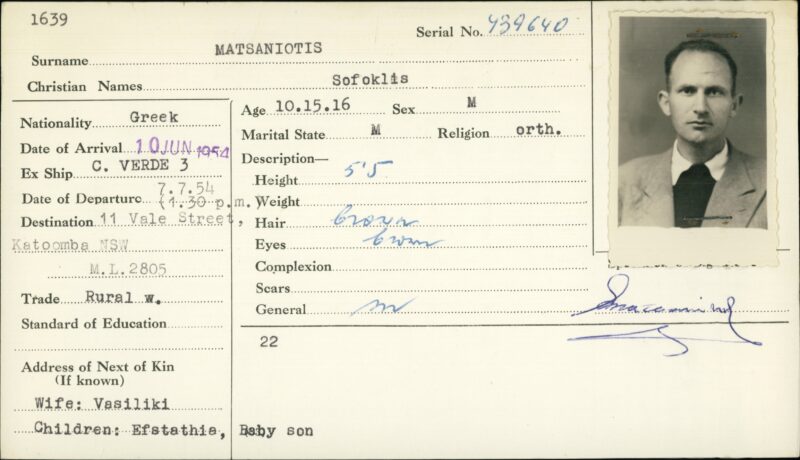 1639
Serial No. 439640
Surname MATSANIOTIS
Christian Names Sofoklis
Nationality Greek
Date of Arrival 10 JUN 1954
Ex Ship C. VERDE 3
Date of Departure 7.7.54
(1.30 p.m.)
Destination 11 Vale Street,
Katoomba NSW
M.L.2805
Trade Rural w.
Standard of Education
Address of Next of Kin
(If known)
Wife: Vasiliki
Children: Efstathia, Baby son
Age 10.15.16 Sex M
Marital State M Religion orth.
Description—
Height 5'5
Weight
Hair brown
Eyes brown
Complexion
Scars
General
22